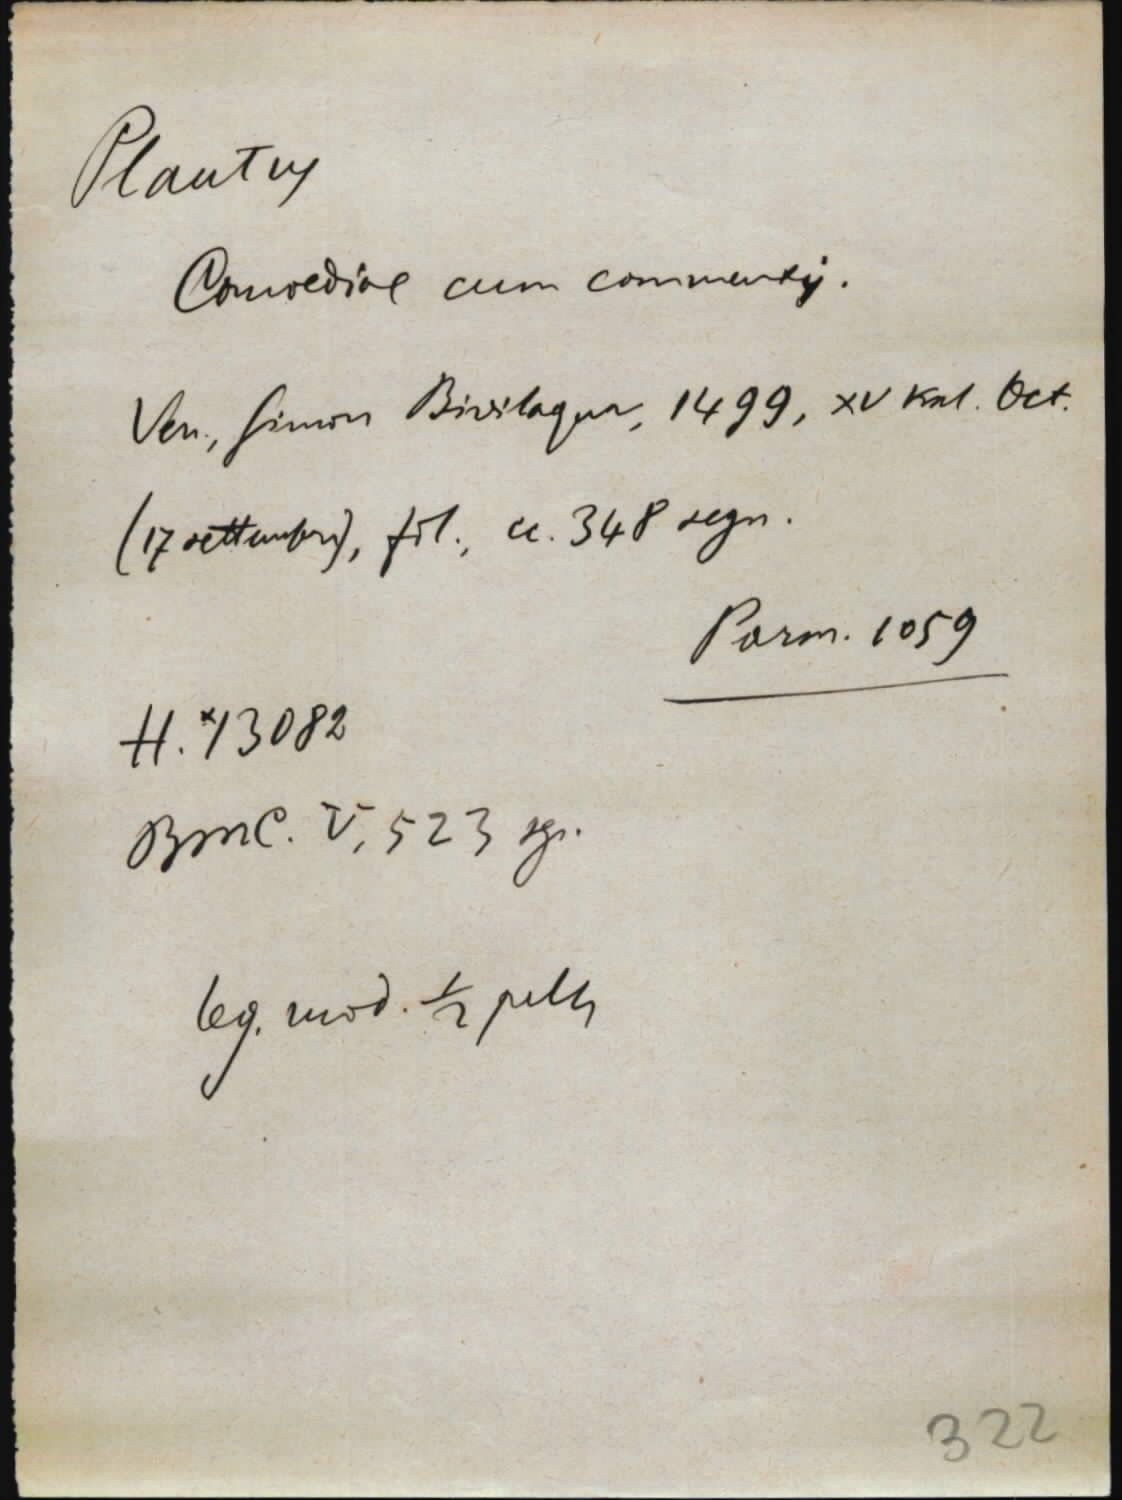 Plautus
Comoediae cum commentariis.
Ven., Simon Bivilaqua, 1499, XV Kal. Oct.
(17 settembre), fol., cc. 348 segn.
Parm. 1059
H. *13082
BMC. V, 523 sgn.
leg. mod. 1/2 pelle
322